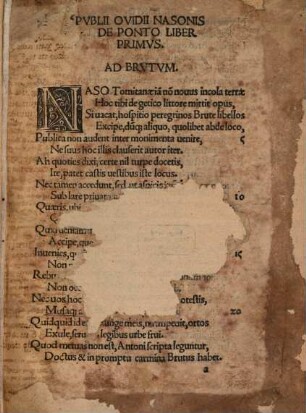 PVBLII OVIDII NASONIS
DE PONTO LIBER
PRIMVS.
AD BRVTVM.
NASO Tomitanæ iã nõ nouus incola terræ
Hoc tibi de getico littore mittit opus,
Si uacat, hospitio peregrinos Brute libellos
Excipe, dũq; aliquo, quolibet abde loco,
Publica non audent inter monumenta uenire, 5
Ne suus hoc illis clauserit autor iter.
Ah quoties dixi, certe nil turpe docetis,
Ite, patet castis uersibus iste locus.
Nec tamen accedunt, sed ut aspicis
Sub lare priua 10
Quæris,
Quo
Accipe, 
Inuenies, 15
Non
Rebu
Non
Ne uos hoc otestis,
Musaq; 20
Quidquid id e unge meis, ortos
Exule, ser legibus urbe frui.
Quod metuas non est, Antoni scripta leguntur,
Doctus & in promptu carmina Brutus habet.
a